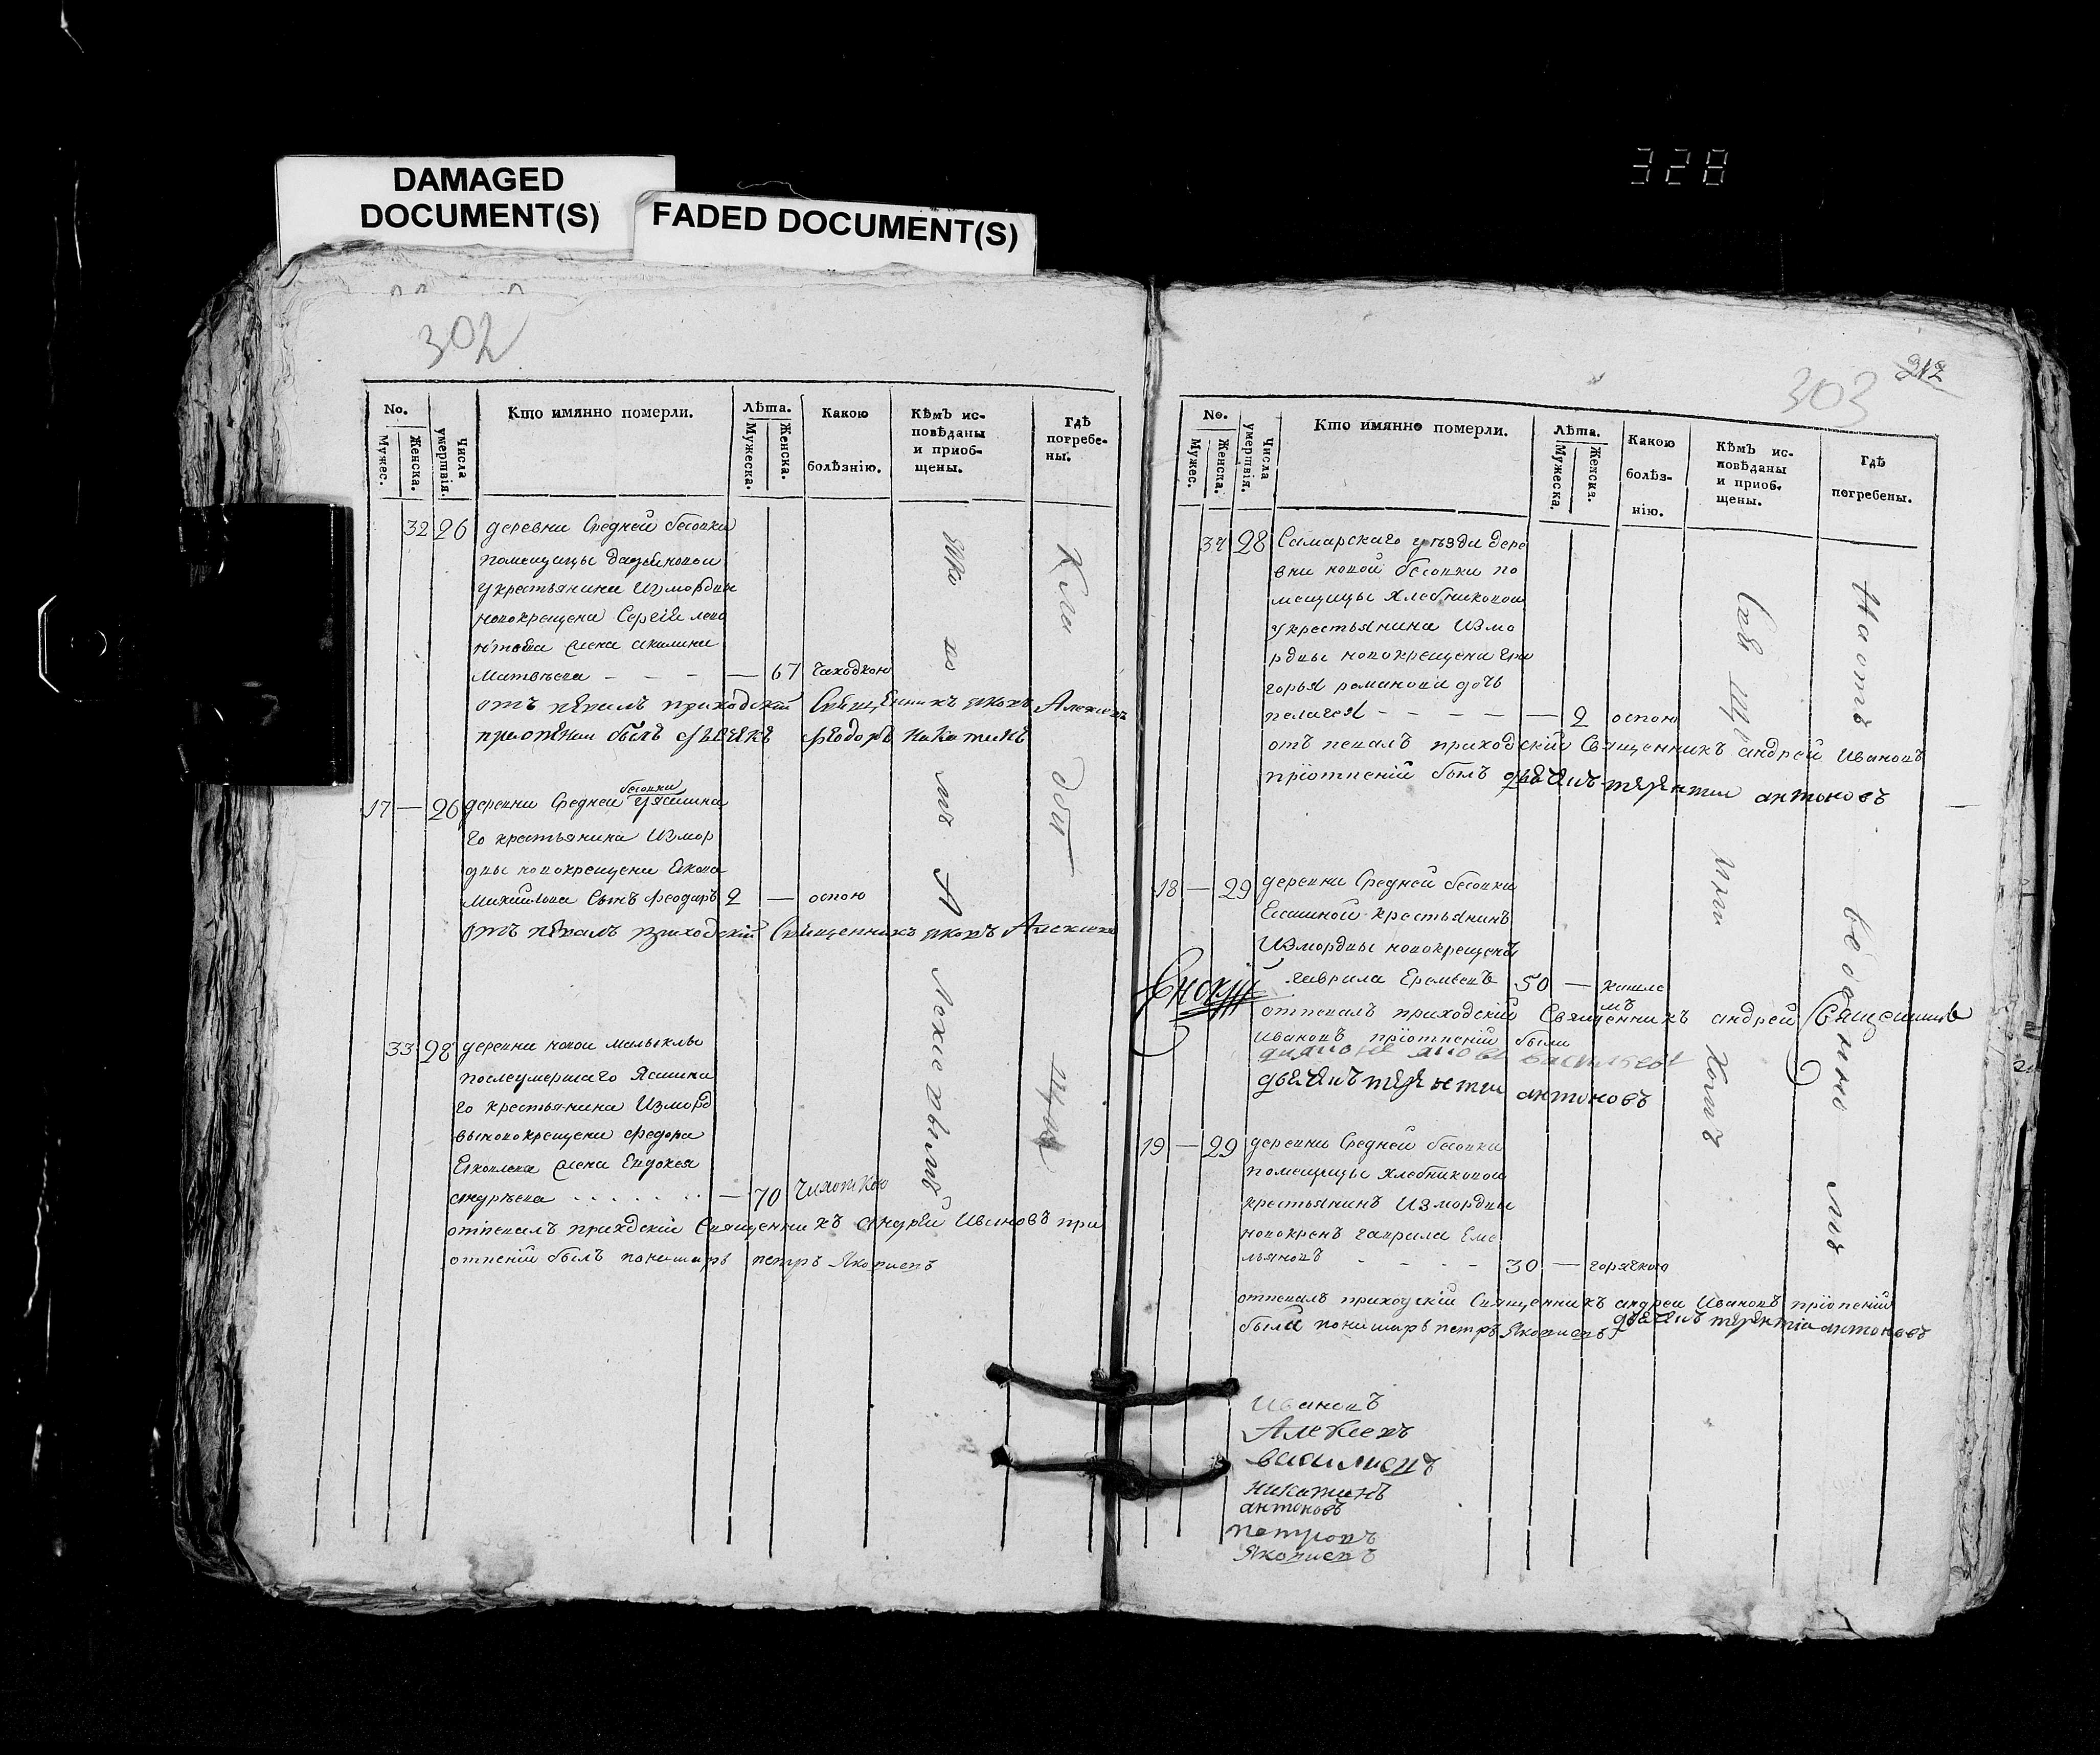 DAMAGED
DOCUMENT(S)
FADED DOCUMENT(S)
328
302
No.
Мужес.
Женска.
Числа умертвія.
Кто имянно померли.
Лѣта.
Мужеска.
Женска.
Какою
болѣзнію.
Кѣмъ ис-
повѣданы
и приоб-
щены.
Гдѣ
погребе-
ны.
32 26 деревни Средней бесовки
помещицы
укрестьянина Измордвы
новокрещена Сергѣя
жена акилина
Матвѣева — 67 чахоткою
отъ пѣвалъ приходскій Священникъ яковъ Алексѣевъ
приотпѣнии былъ дьячекъ феодоръ никитинъ
17 — 26 деревни Средней бесовки Ясашна
го крестьянина Измор
двы новокрещена Якова
Михайлова Сынъ феодоръ 2 — оспою
отъ пѣвалъ приходскій Священникъ яковъ Алексѣевъ
33 28 деревни новой малыклы
послеумершаго Ясашна
го крестьянина Изморд
выновокрещена федора
Яковлева жена Евдокея
андрѣева — 70 чихоткою
отпевалъ прихдскій Священникъ андрей Ивановъ при
отпеніи былъ понамарь петръ Яковлевъ
303
312
No.
Мужес.
Женска.
Числа умертвія.
Кто имянно померли.
Лѣта.
Мужеска.
Женска.
Какою
болѣз-
нію.
Кѣмъ ис-
повѣданы
и приоб-
щены.
Гдѣ
погребены.
34 28 Самарскаго уѣзда дере
вни новой бесовки по
мещицы Хлебниковой
укрестьянина Измо
рдвы новокрещена гри
горья романова дочь
пелагея — 2 оспою
отъ певалъ приходскій Священникъ андрей Ивановъ
пріотпеніи былъ дьячекъ терентеи антоновъ
18 — 29 деревни Средней бесовки
Ясашной крестьянинъ
Измордвы новокрещенъ
гаврила Еремѣевъ 50 — кашле
мъ
отпевалъ приходскій Священникъ андрей Священникъ
Ивановъ пріотпеніи были
дьячекъ терентеи антоновъ
19 — 29 деревни Средней бесовки
помещицы хлебниковой
крестьянинъ Измордвы
новокренъ гаврила Еме
льяновъ — 30 — горячкою
отпевалъ приходскій Священникъ андреи Ивановъ пріопеніи
были понамарь петръ Яковлевъ дьячекъ терентіи антоновъ
Ивановъ
Алексѣевъ
василиевъ
никитинъ
антоновъ
петровъ
Яковлевъ